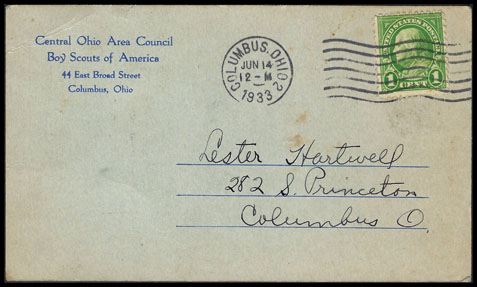 Central Ohio Area Council
Boy Scouts of America
44 East Broad Street
Columbus, Ohio
COLUMBUS, OHIO 2
JUN 14
12 - M
1933
UNITED STATES POSTAGE
1 CENT 1
Lester Hartwell
282 S. Princeton
Columbus O.